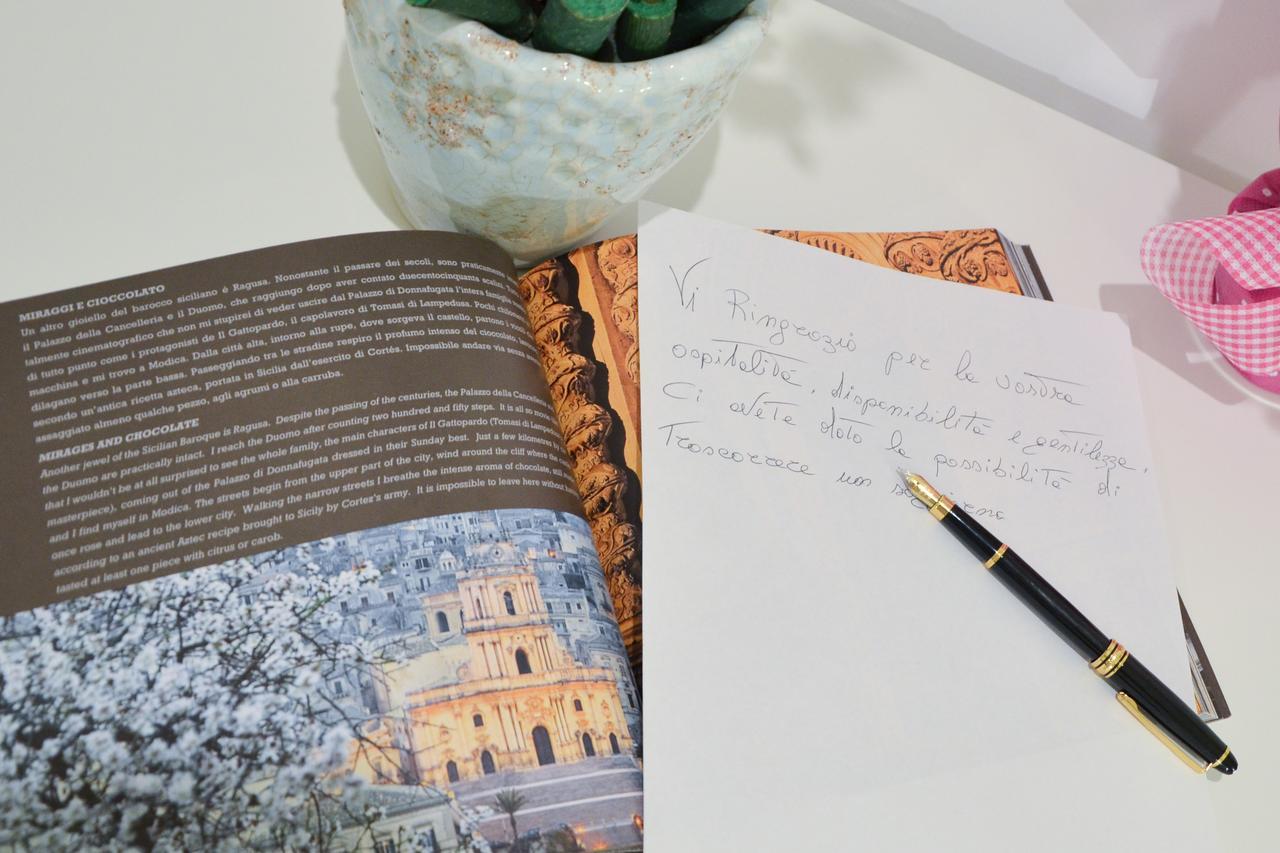 MIRAGGI E CIOCCOLATO
Un altro gioiello del barocco siciliano è Ragusa. Nonostante il passare dei secoli, sono praticamente
il Palazzo della Cancelleria e il Duomo, che raggiungo dopo aver contato duecentocinquanta scalini.
talmente cinematografico che non mi stupirei di veder uscire dal Palazzo di Donnafugata l'intera famiglia
di tutto punto come i protagonisti de Il Gattopardo, il capolavoro di Tomasi di Lampedusa. Pochi chilometri
macchina e mi trovo a Modica. Dalla città alta, intorno alla rupe, dove sorgeva il castello, partono i
dilagano verso la parte bassa. Passeggiando tra le stradine respiro il profumo intenso del cioccolato,
secondo un'antica ricetta azteca, portata in Sicilia dall'esercito di Cortés. Impossibile andare via senza
assaggiato almeno qualche pezzo, agli agrumi o alla carruba.
MIRAGES AND CHOCOLATE
Another jewel of the Sicilian Baroque is Ragusa. Despite the passing of the centuries, the Palazzo della Cancelleria
the Duomo are practically intact. I reach the Duomo after counting two hundred and fifty steps. It is all so
that I wouldn't be at all surprised to see the whole family, the main characters of Il Gattopardo (Tomasi di Lampedusa
masterpiece), coming out of the Palazzo di Donnafugata dressed in their Sunday best. Just a few kilometres
and I find myself in Modica. The streets begin from the upper part of the city, wind around the cliff where the
once rose and lead to the lower city. Walking the narrow streets I breathe the intense aroma of chocolate, still
according to an ancient Aztec recipe brought to Sicily by Cortes's army. It is impossible to leave here without
tasted at least one piece with citrus or carob.
Vi Ringrazio per la vostra
ospitalità, disponibilità e gentilezza.
Ci avete dato la possibilità di
Trascorrere un